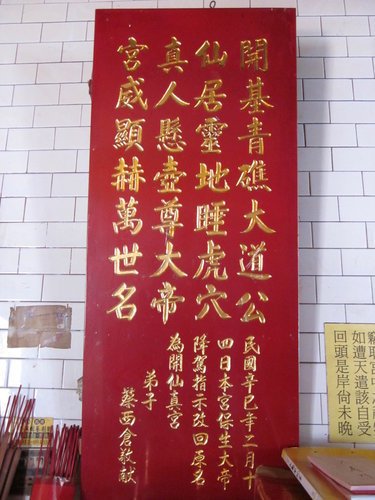 開基青礁大道公
仙居靈地睡虎穴
真人懸壺尊大帝
宮威顯赫萬世名
民國辛巳年二月十
四日本宮保生大帝
降駕指示改回原名
為開仙真宮
弟子
蔡西倉敬献
如遭天遣該自受
回頭是岸尚未晚